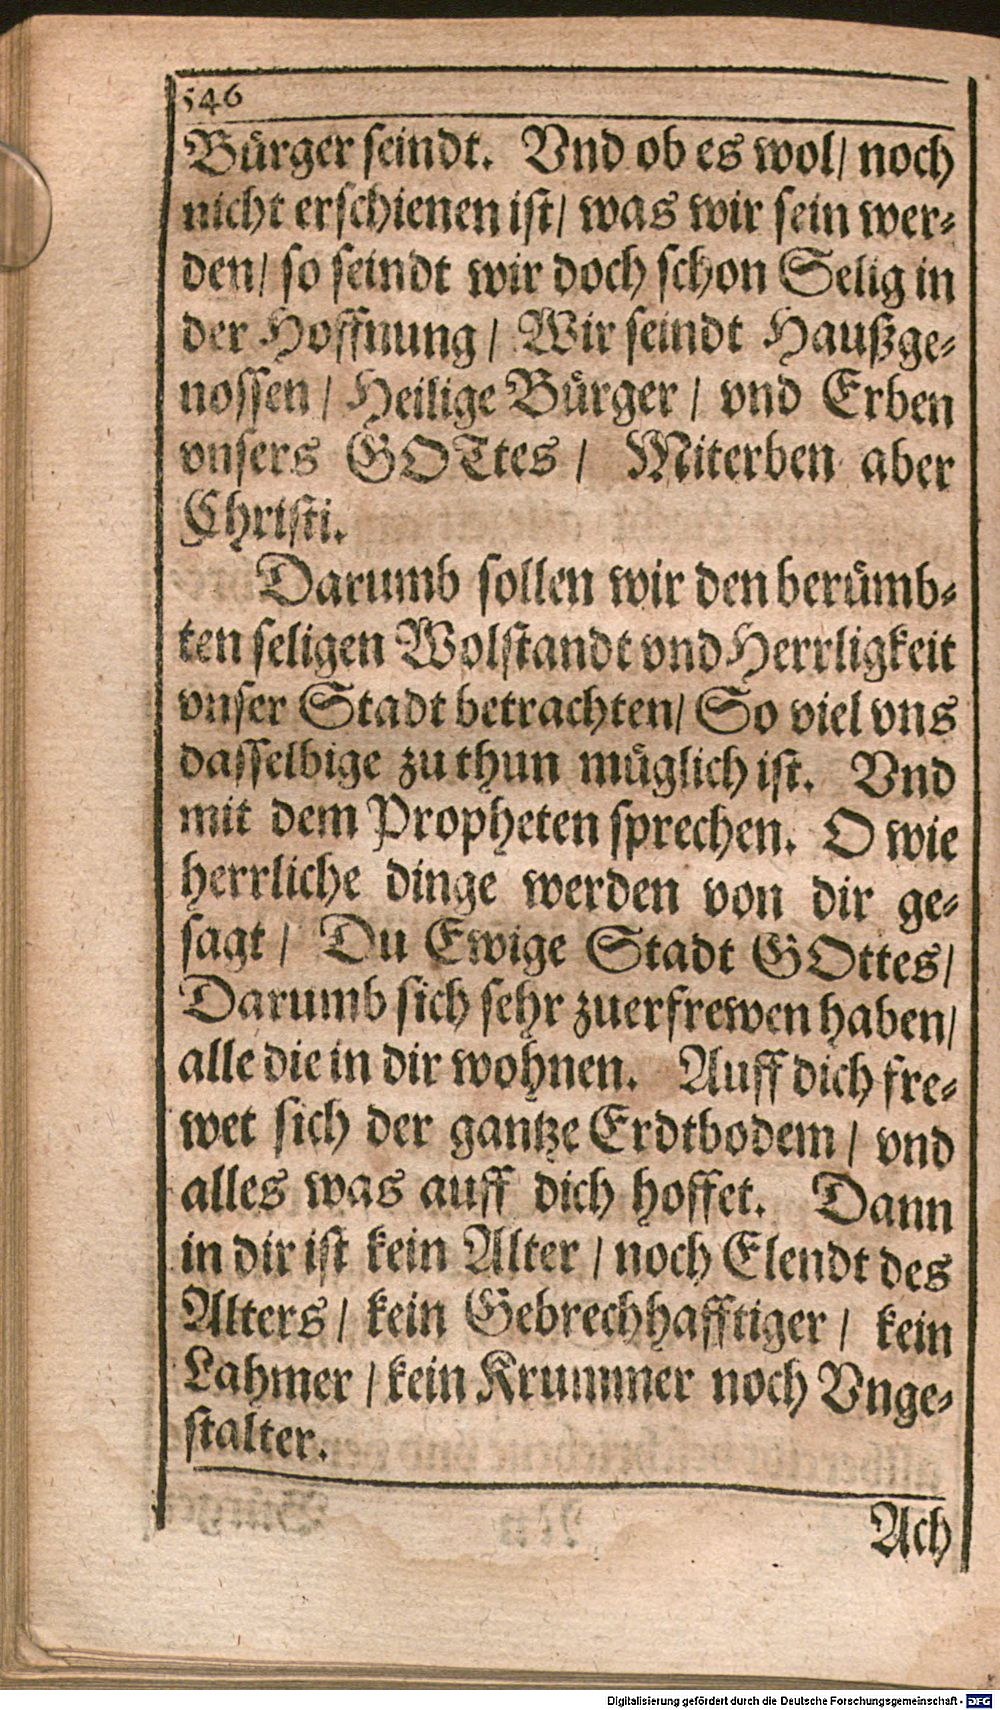 546
Bürger seindt. Vnd ob es wol/ noch
nicht erschienen ist/ was wir sein wer-
den/ so seindt wir doch schon Selig in
der Hoffnung/ Wir seindt Haußge-
nossen/ Heilige Bürger/ vnd Erben
vnsers GOTtes/ Miterben aber
Christi.
Darumb sollen wir den berümb-
ten seligen Wolstandt vnd Herrligkeit
vnser Stadt betrachten/ So viel vns
dasselbige zu thun müglich ist. Vnd
mit dem Propheten sprechen. O wie
herrliche dinge werden von dir ge-
sagt/ Du Ewige Stadt GOttes/
Darumb sich sehr zuerfrewen haben/
alle die in dir wohnen. Auff dich fre-
wet sich der gantze Erdtbodem/ vnd
alles was auff dich hoffet. Dann
in dir ist kein Alter/ noch Elendt des
Alters/ kein Gebrechhafftiger/ kein
Lahmer/ kein Krummer noch Vnge-
stalter.
Ach
Digitalisierung gefördert durch die Deutsche Forschungsgemeinschaft - DFG